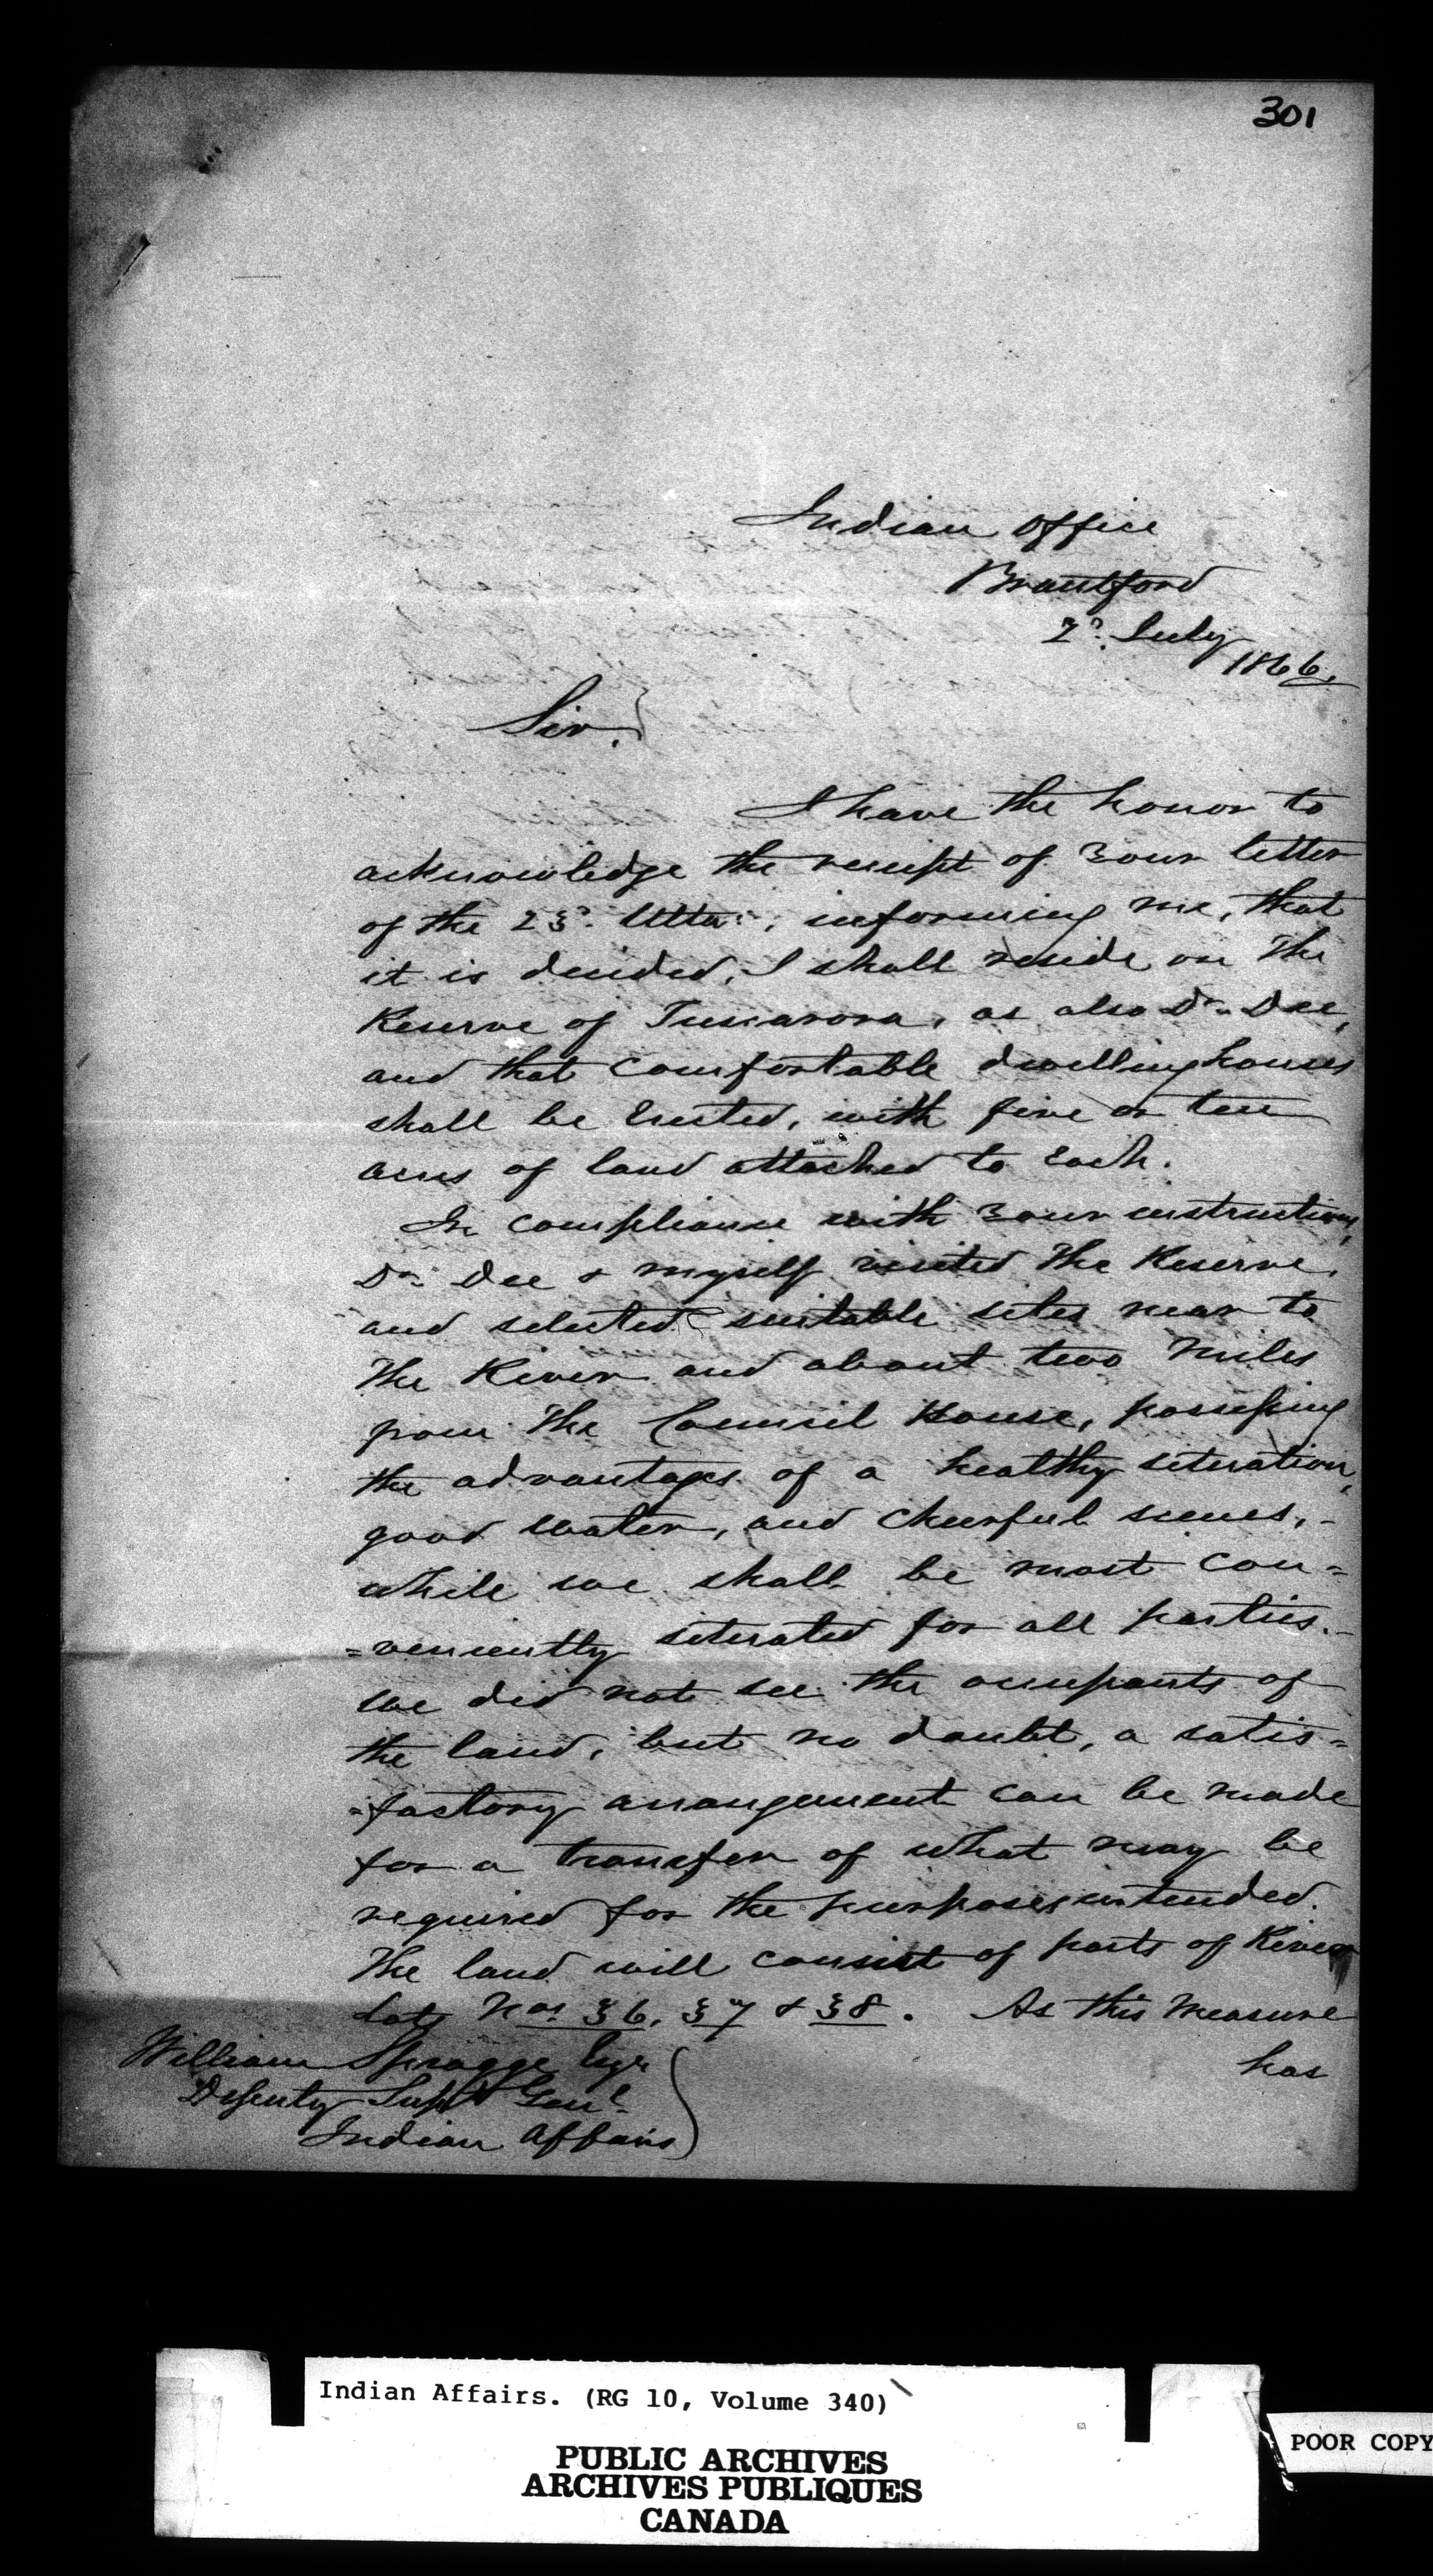 301
Indian Office
Brantford
2d. July
1866.
Sir,
I have the honor to
acknowledge the receipt of Your letter
of the 23d. Ulto:, informing me, that
it is decided, I shall reside on the
Reserve of Tuscarora, as also Dr. Dee,
and that comfortable dwelling houses
shall be Erected, with five or ten
acres of land attached to Each.
In compliance with Your instructions,
Dr. Dee & myself visited the Reserve,
and selected suitable sites near to
the River and about two Miles
from the Council House, possessing
the advantages of a healthy situation,
good water, and cheerful scenes, -
while we shall be most con=
=veniently situated for all parties. -
We did not see the occupants of
the land, but no doubt, a satis=
=factory arrangement can be made
for a transfer of what may be
required for the purposes intended.
The land will consist of parts of River
Lots Nos. 36, 37 & 38. As this Measure
has
William Spragge Esqr
Deputy Supt Genl.
Indian Affairs
Indian Affairs. (RG 10, Volume 340)
PUBLIC ARCHIVES
ARCHIVES PUBLIQUES
CANADA
POOR COPY